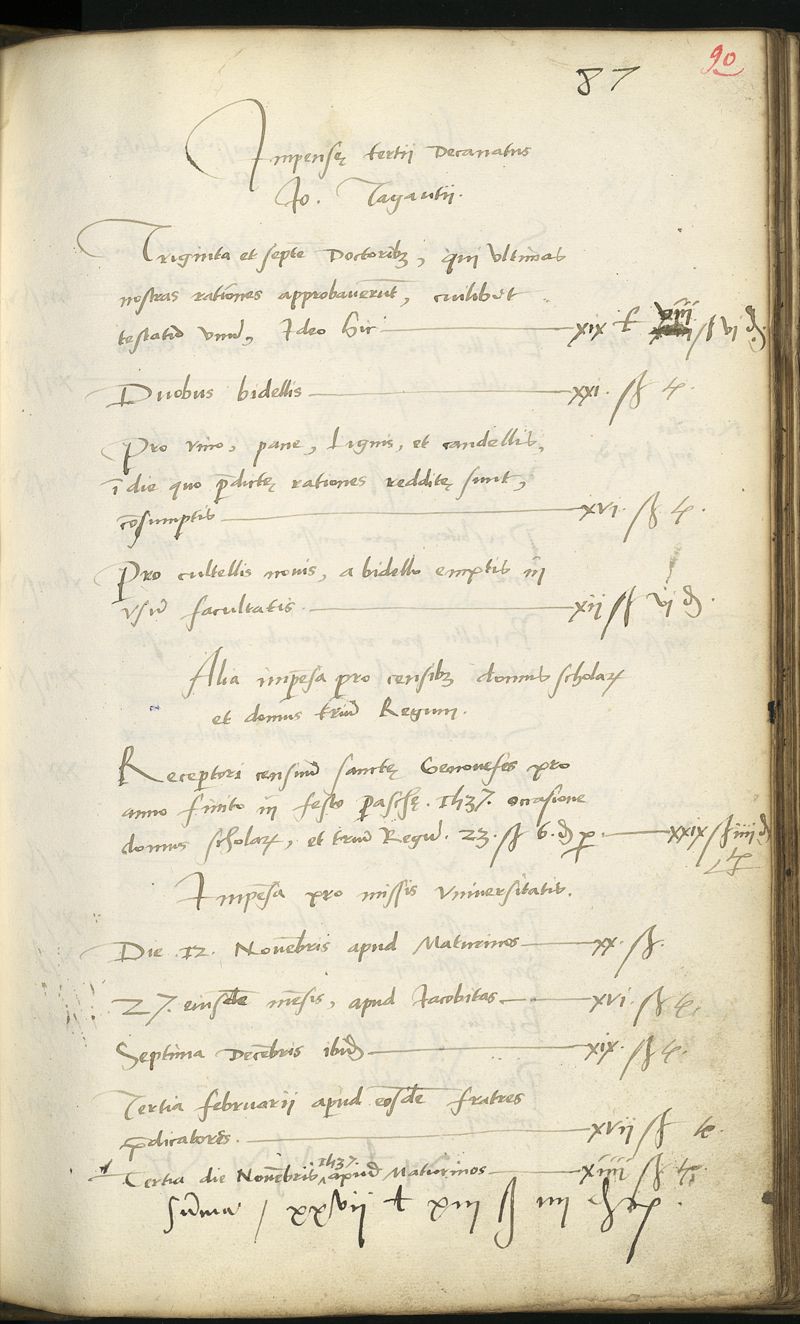 90
87
Impensę tertii Decanatus
Jo. Tagautii.
Triginta et septē Doctoribꝫ, qui ultimas
nostras rationes approbaverūt, cuilibet
testatū unū, Ideo hic xix ł viii ß vi d.
Duobus bidellis xxi. ß t.
Pro vino, pane, lignis, et candellis,
ī die quo p̄dictę rationes redditę sunt,
cōsumptis xvi. ß t.
Pro cultellis novis, a bidello emptis in
usū facultatis. xii ß vi d.
Alia impēsa pro censibꝫ domus scholarꝝ
et domus triū Regum.
Receptori censuū sanctę Genovefes pro
anno finito in festo paschę. 1537. occasione
domus scholarꝝ, et triū Regū. 23. ß 6. d p. xxix ß iiii d
t
Impēsa pro missis Universitatis.
Die .12. Novēbris apud Maturinos xx. ß.
27. eiusdē mēsis, apud Iacobitas xvi. ß t.
Septima Decēbris ibid xix. ß t.
Tertia februarii apud eosdē fratres
p̄dicatores. xvii ß t.
Tertia die Novēbris 1537. apud Maturinos xiiii ß t.
Sūma / xxvii ł xiii ß iiii d t.